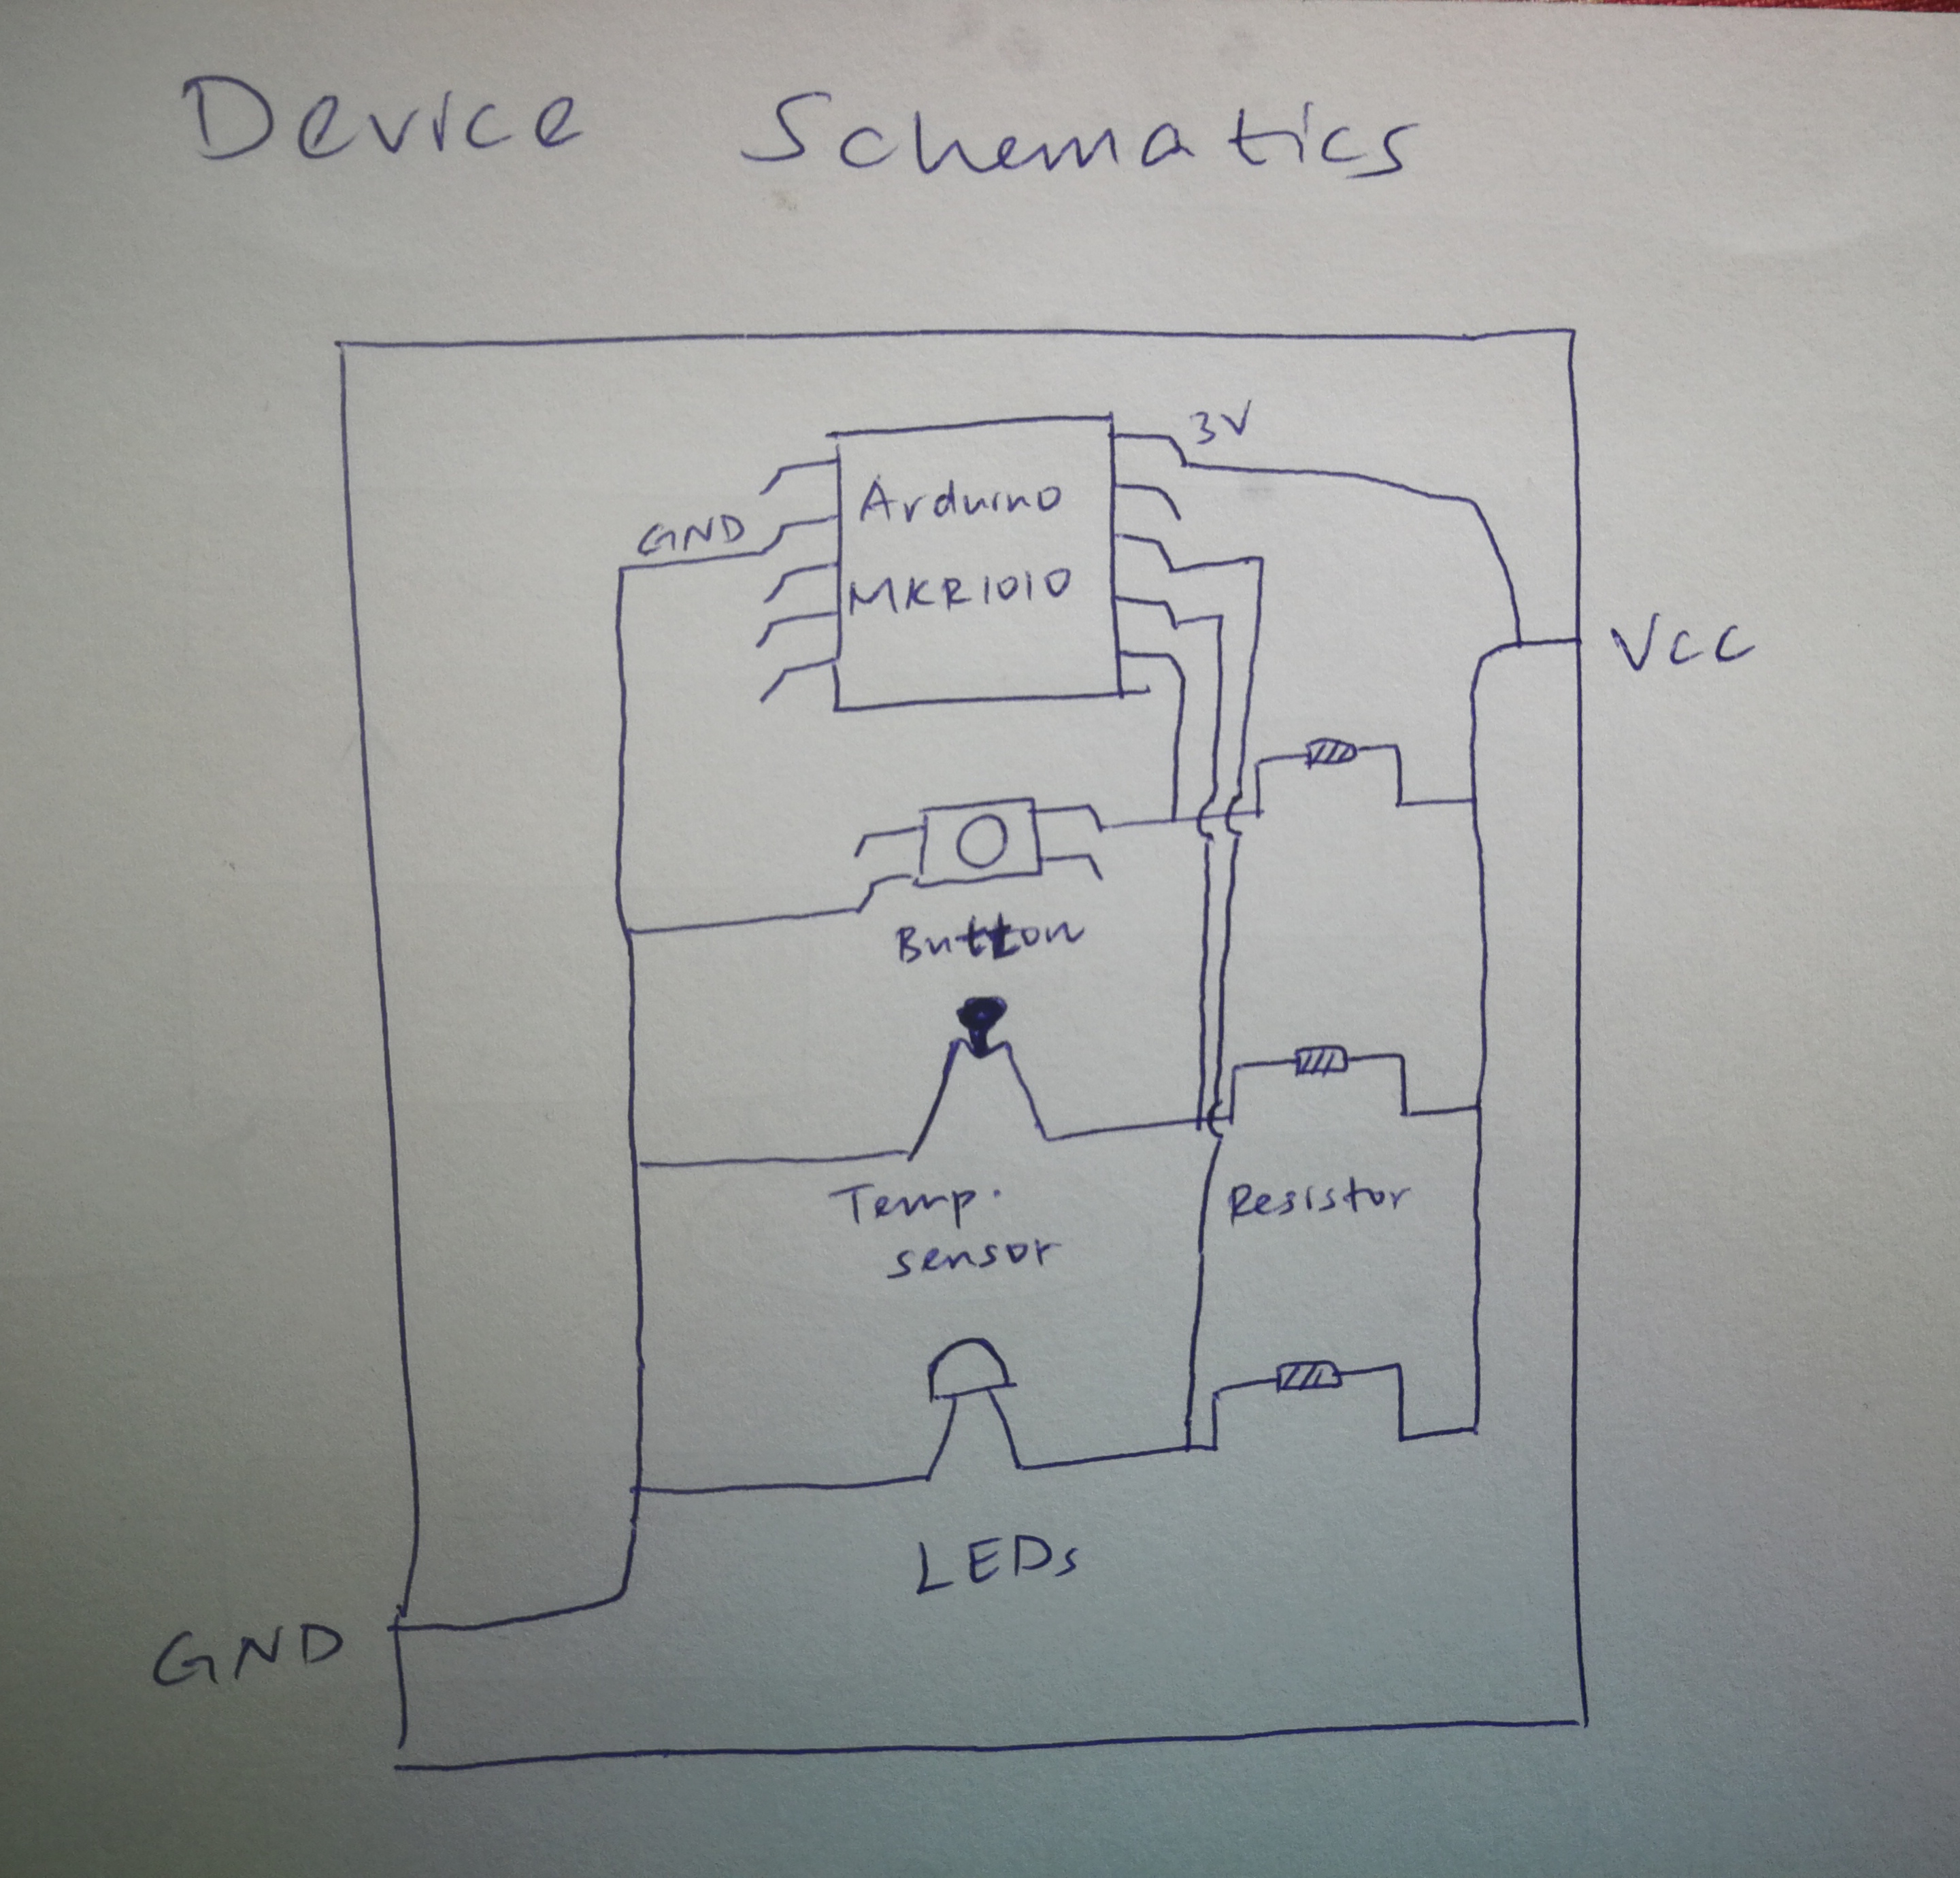 Device Schematics
3V
GND
Arduino
MKR1010
VCC
Button
Temp.
sensor
Resistor
LEDs
GND